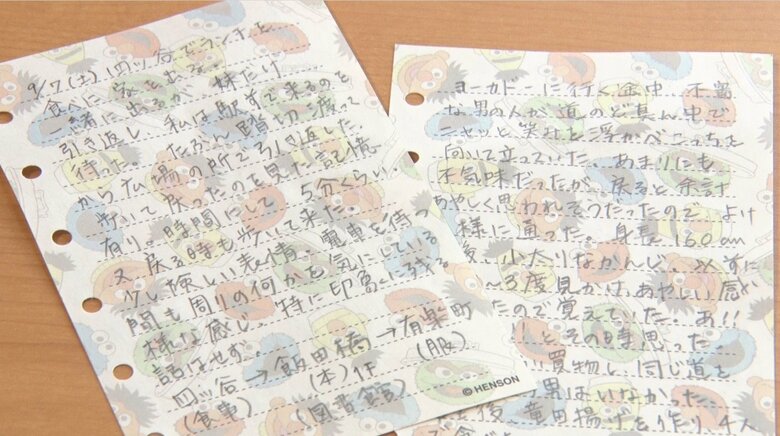 9/7(土) 四ッ谷でランチを
食べに 家を出る
一緒に出るが、妹だけ
引き返し、私は駅まで来るのを
待った。たぶん踏切渡って
から広場の所で引き返した。
歩いて戻ったのを見た記憶
有り。時間にして 5分くらい。
又、戻る時も歩いて来た。
少し険しい表情。電車を待つ
間も周りの何かを気にしている
様な感じ。特に印象に残る
話はせず
四ッ谷→飯田橋→有楽町
(食事) (本)作 (服)
(図書館)
© HENSON
ヨーカドーに行く途中、不審
な男の人が道のど真ん中で
ニヤッと笑みを浮かべこっちを
向いて立っていた。あまりにも
不気味だったが、戻ると余計
あやしく思われそうだったので、よけ
様に通った。身長160cm
後、小太りなかんじ、
~3度見かけ、あやしい感じ
たので覚えていた。あ!!
!! とその時思った
買物し、同じ道を
男はいなかった
後、竜田揚げを作り、4人